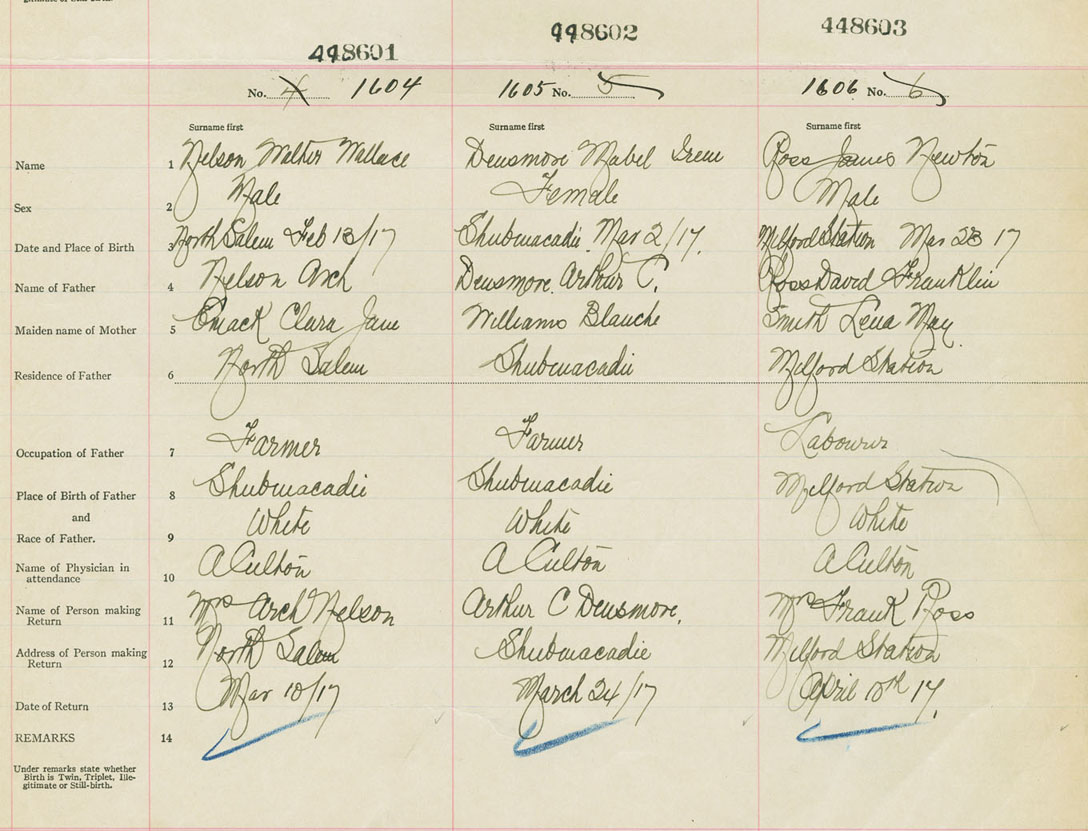 gitimate or Still-birth.
448601 448602 448603
No. 4 1604 1605 No. 5 1606 No. 6
Surname first Surname first Surname first
Name 1 Nelson Walter Wallace Densmore Mabel Irene Ross James Newton
Sex 2 Male Female Male
Date and Place of Birth 3 North Salem Feb 13/17 Shubenacadie Mar 2/17. Milford Station Mar 23 17
Name of Father 4 Nelson Arch Densmore. Arthur C. Ross David Franklin
Maiden name of Mother 5 Emack Clara Jane Williams Blanche Smith Lena May.
Residence of Father 6 North Salem Shubenacadie Milford Station
Occupation of Father 7 Farmer Farmer Labourer
Place of Birth of Father 8 Shubenacadie Shubenacadie Milford Station
and
Race of Father. 9 White White White
Name of Physician in
attendance 10 A Culton A Culton A Culton
Name of Person making
Return 11 Mrs Arch Nelson Arthur C Densmore. Mrs Frank Ross
Address of Person making
Return 12 North Salem Shubenacadie Milford Station
Date of Return 13 Mar 10/17 March 24/17 April 10th 17.
REMARKS 14
Under remarks state whether
Birth is Twin, Triplet, Ille-
gitimate or Still-birth.